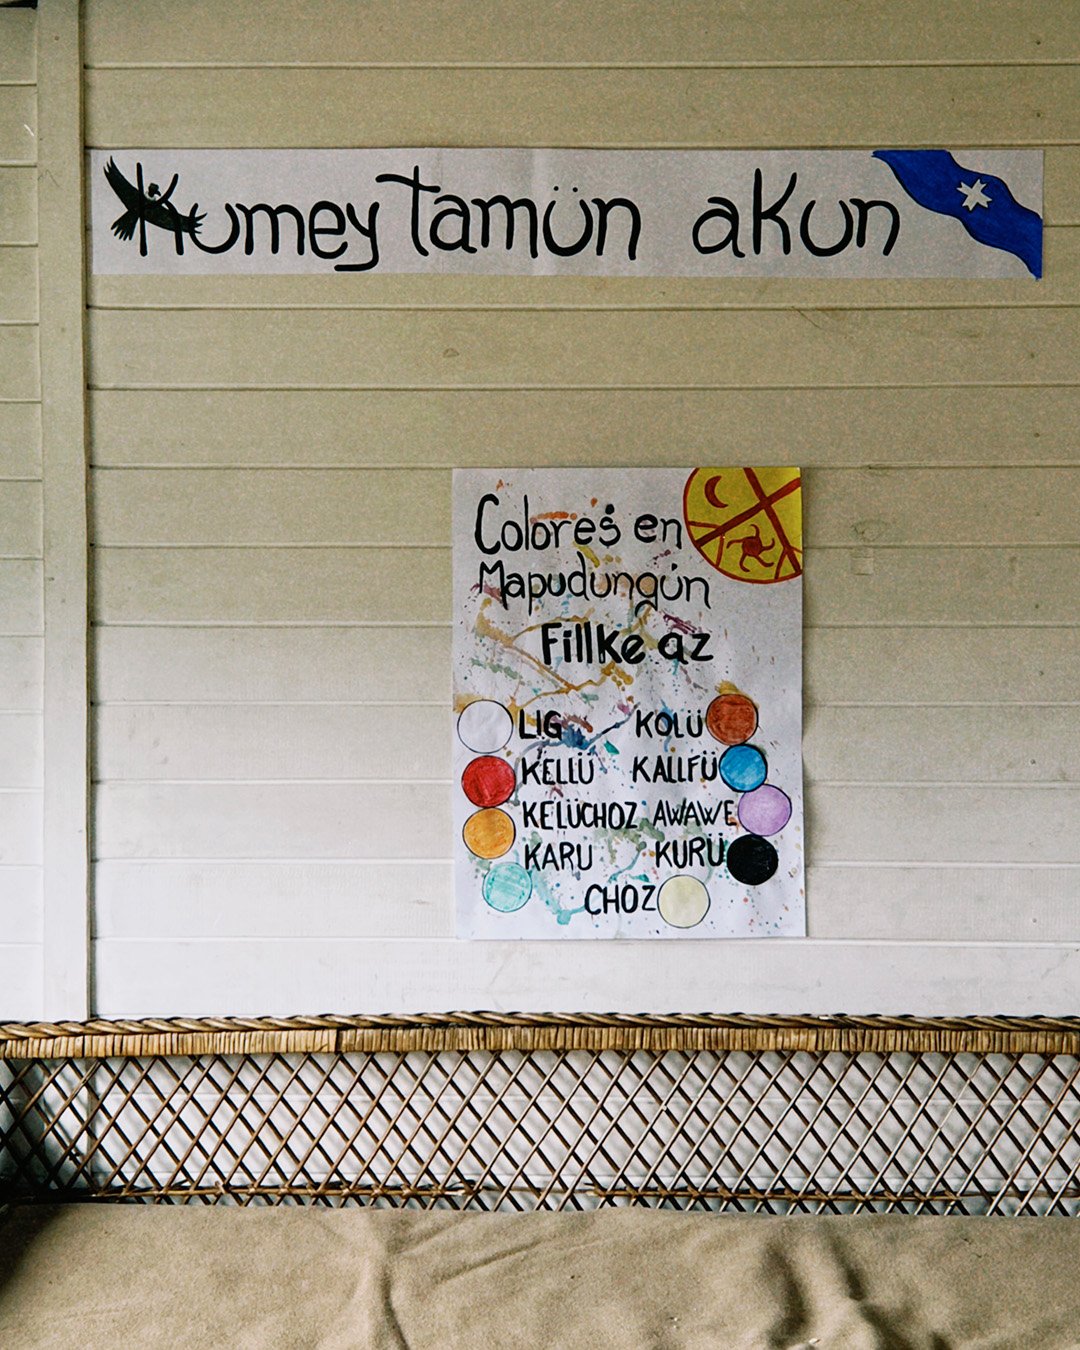 Kumey tamün akun
Colores en
Mapudungún
Fillke az
LIG KOLÜ
KELLÜ KALLFÜ
KELÜCHOZ AWAWE
KARU KURÜ
CHOZ